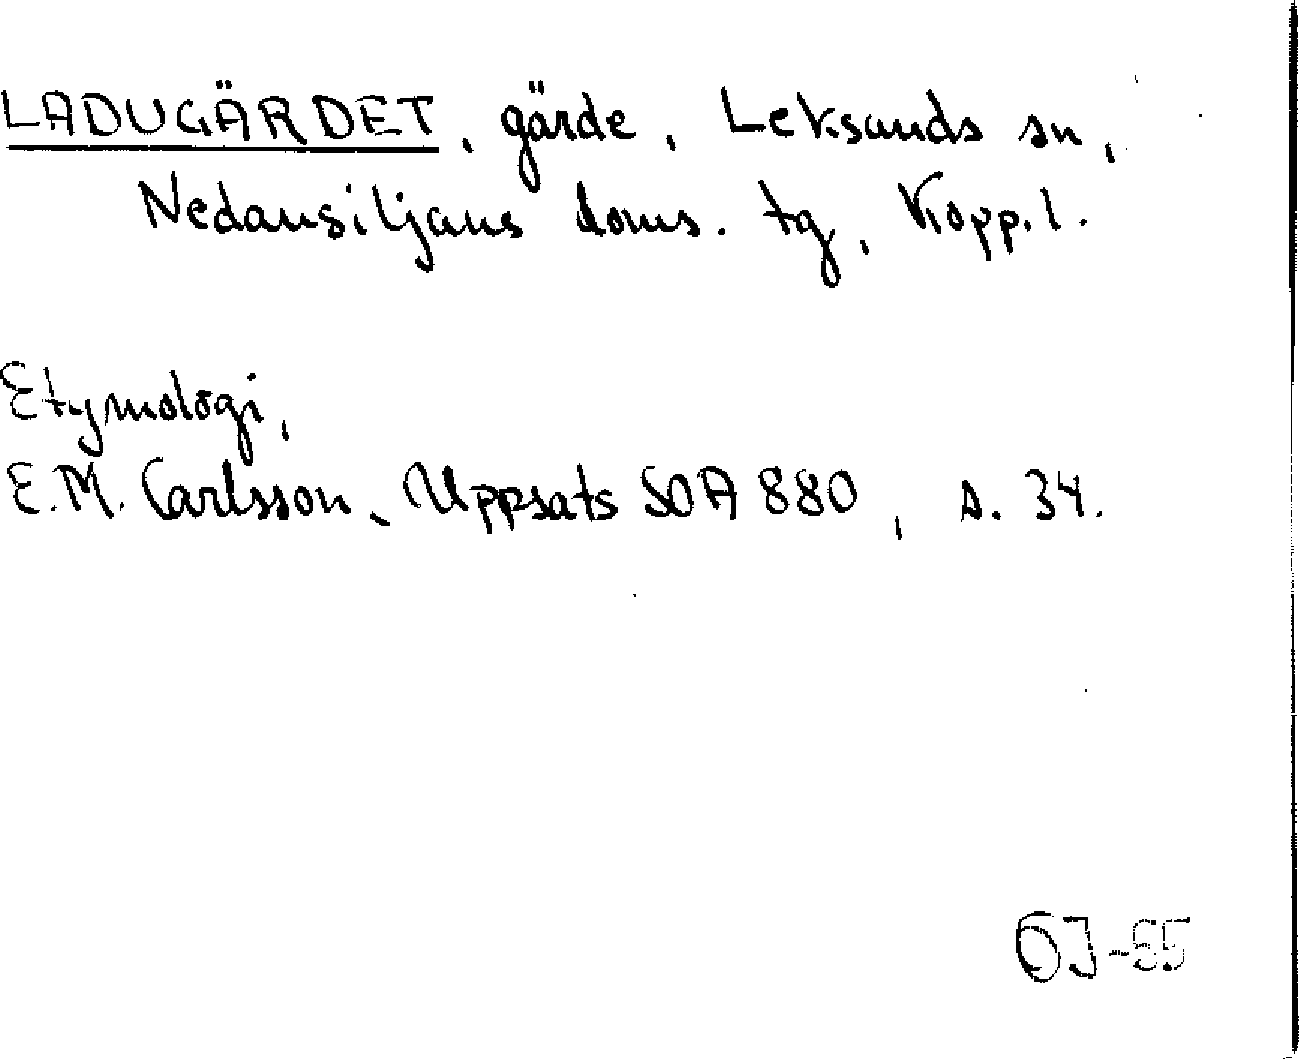 LADUGÄRDET, gärde, Leksands sn,
Nedansiljans doms. tg, Kopp. l.
Etymologi,
E.M. Carlsson, Uppsats SOA 880, s. 34.
ÖJ-55